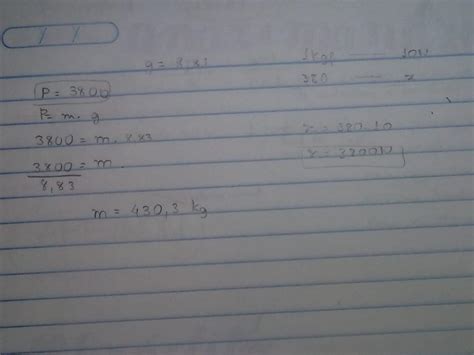 g = 8,83
P = 3800
P = m. g
3800 = m. 8,83
3800 = m.
8,83
m = 430,3 kg
1kgf ----- 10N
380 ----- x
x = 380.10
x = 3800N